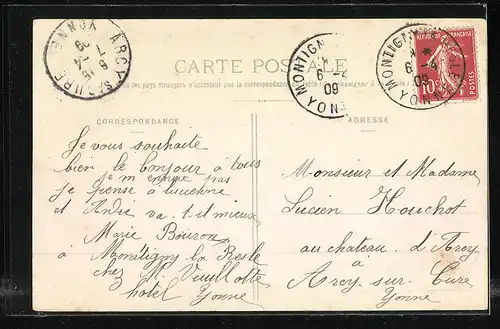 ARCY S CURE
6 15
7 -4
09
YONNE
MONTIGNY
6 -4
09
YONNE
MONTIGNY LA RESLE
*
6 -4
09
YONNE
REPUBLIQUE FRANÇAISE
10
POSTES
CARTE POSTALE
CORRESPONDANCE
ADRESSE
Je vous souhaite
bien le bonjour à tous
je m'ennuye pas
je pense à lucienne
et André va-t-il mieux
Marie Bouron
à Montigny la Resle
chez M. Veuillotte
hotel Yonne
Monsieur et Madame
Lucien Houchot
au chateau d'Arcy
à
Arcy-sur-Cure
Yonne